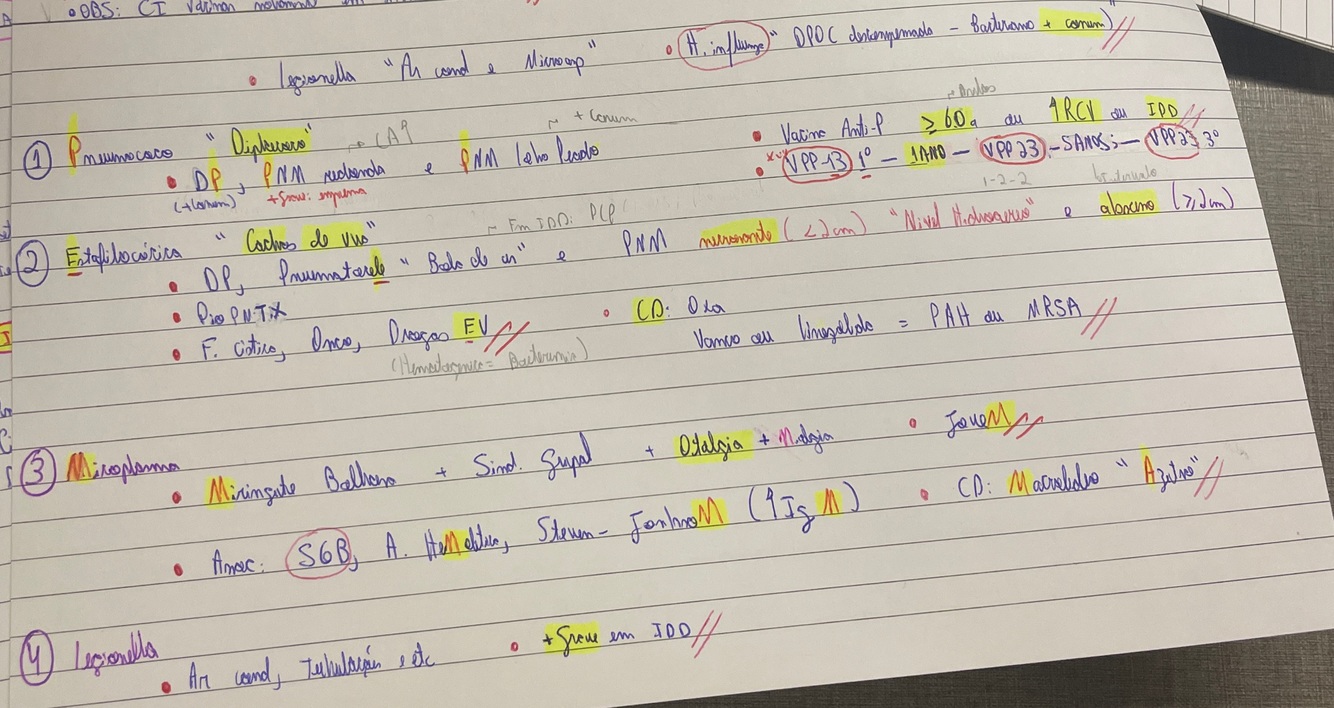 • OBS: CI
• Legionella "Ar cond e Microasp"
• H. influenza "DPOC descompensado - Bacteriano + comum"
① Pneumococo "Diplococo"
~ + comum
• DP, PNM redonda e PNM lobo Pesado
(+comum) + Grave: empiema
• Vacina Anti-P ≥ 60a ou ↑RCV ou IDD
• VPP-13 1º - 1ANO - VPP23 - 5ANOS; - VPP23 3º
1-2-2
② Estafilocócica "Cachos de uva"
~ Em IDD: PCP
• DP, Pneumatocele "Bola de ar" e PNM necrosante (<2cm) "Nível Hidroaéreo" e abscesso (≥2cm)
• PioPNTX
• F. Cística, Onco, Drogas EV
(Hematogênica = Bacteremia)
• CD: Oxa
Vanco ou linezolida = PAH ou MRSA
③ Micoplasma
• Miringite Bolhosa + Sind. Gripal + Otalgia + Mialgia
• JoveM
• Assoc: SGB, A. HeMolítica, Steven-JonhsoM (↑IgM)
• CD: Macrolídeo "Azitro"
④ Legionella
• Ar cond, Tubulações e etc
• + Grave em IDD